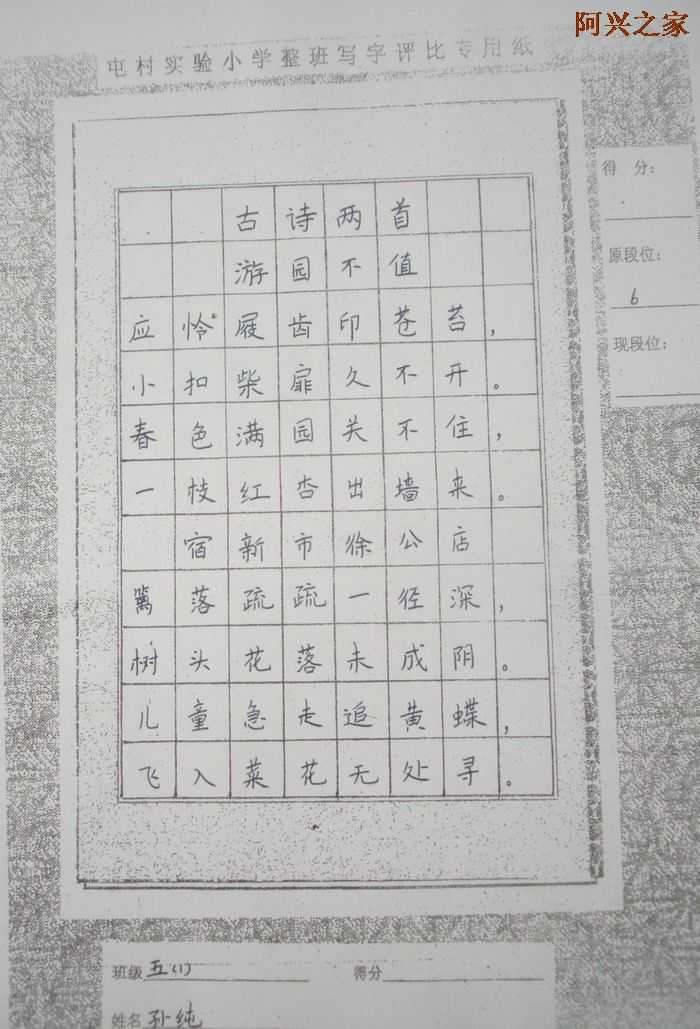 阿兴之家
屯村实验小学整班写字评比专用纸
得 分：
原段位：
6
现段位：
古诗两首
游园不值
应怜屐齿印苍苔，
小扣柴扉久不开。
春色满园关不住，
一枝红杏出墙来。
宿新市徐公店
篱落疏疏一径深，
树头花落未成阴。
儿童急走追黄蝶，
飞入菜花无处寻。
班级 五(1) 得分
姓名 孙纯